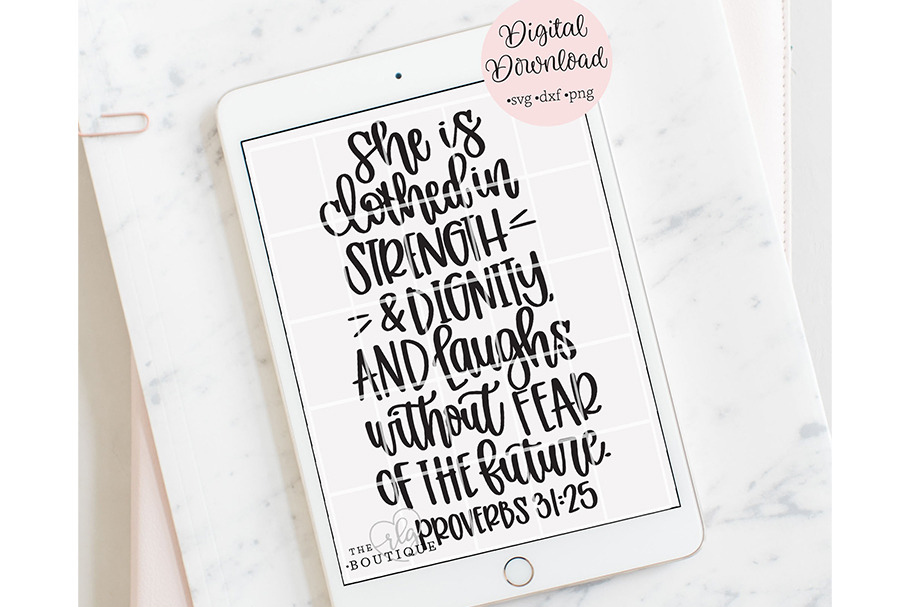 Digital
Download
•svg •dxf •png
she is
clothed in
STRENGTH
& DIGNITY,
AND laughs
without FEAR
OF THE future.
PROVERBS 31:25
THE rlg
•BOUTIQUE